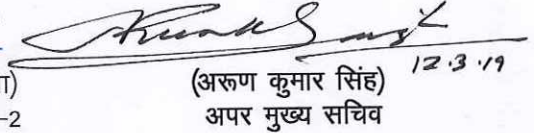 12.3.19
ा) (अरूण कुमार सिंह)
-2 अपर मुख्य सचिव